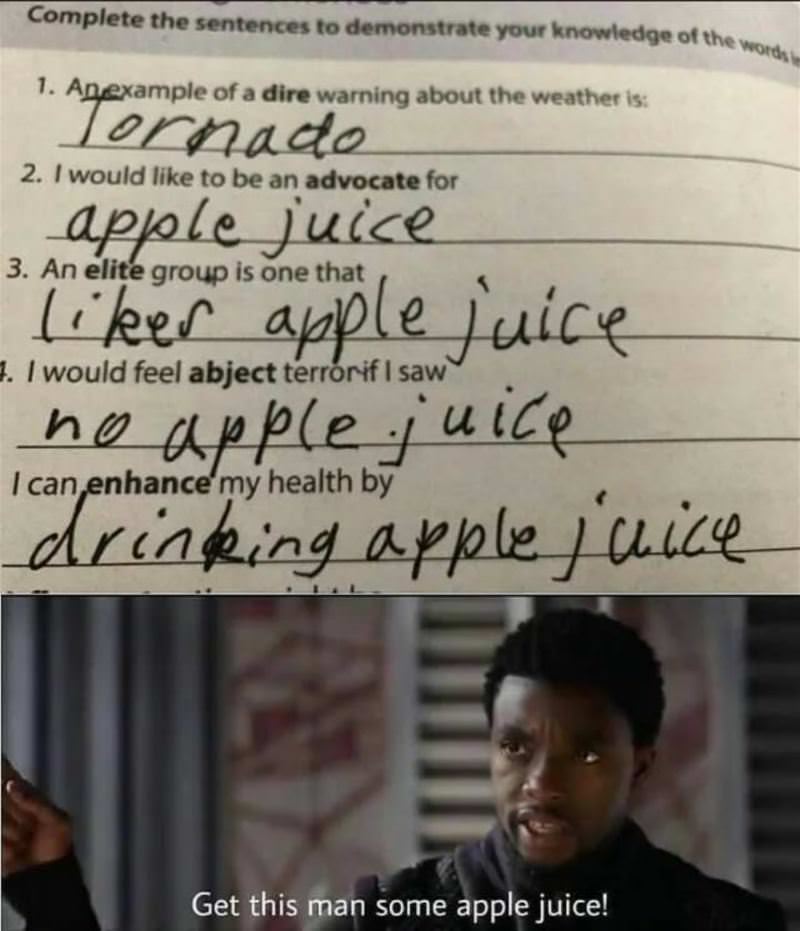 Complete the sentences to demonstrate your knowledge of the words
1. An example of a dire warning about the weather is:
Tornado
2. I would like to be an advocate for
apple juice
3. An elite group is one that
likes apple juice
I would feel abject terror if I saw
no apple juice
I can enhance my health by
drinking apple juice
Get this man some apple juice!